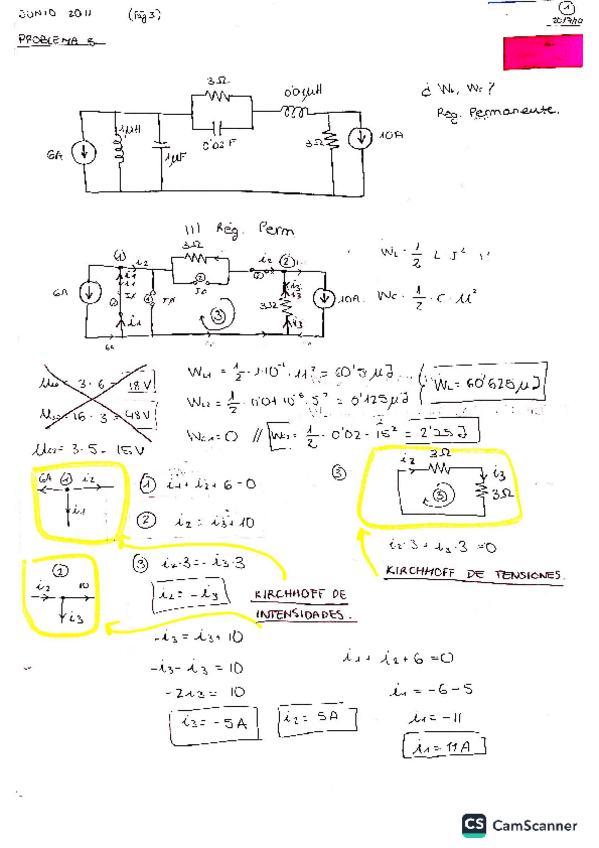 JUNIO 2011 (Fig 3)
1
PROBLEMA
3Ω
0'01μH
¿ WL, Wc?
Reg. Permanente.
6A
1μH
1μF
0'02 F
3Ω
10A
Reg. Perm
(1) i2 3Ω i2 (2)
WL = 1/2 L I²
6A
i1
3Ω
i3
10A
Wc = 1/2 · C · u²
(3)
3·6 = 18V
16·3 = 48V
3·5 = 15V
WL1 = 1/2 · 1·10⁻⁶ · 11² = 60'5 μJ
WL2 = 1/2 · 0'01·10⁻⁶ · 5² = 0'125 μJ
WL = 60'625 μJ
Wc1 = 0 // Wc2 = 1/2 · 0'02 · 15² = 2'25 J
6A (1) i2
i1
(1) i1 + i2 + 6 = 0
(2) i2 = i3 + 10
(3)
i2 3Ω i3
(3) 3Ω
i2·3 + i3·3 = 0
KIRCHHOFF DE TENSIONES.
(2)
i2 10
i3
(3) i2·3 = -i3·3
i2 = -i3
KIRCHHOFF DE
INTENSIDADES.
-i3 = i3 + 10
-i3 - i3 = 10
-2i3 = 10
i3 = -5A
i2 = 5A
i1 + i2 + 6 = 0
i1 = -6-5
i1 = -11
i1 = 11A
CS CamScanner